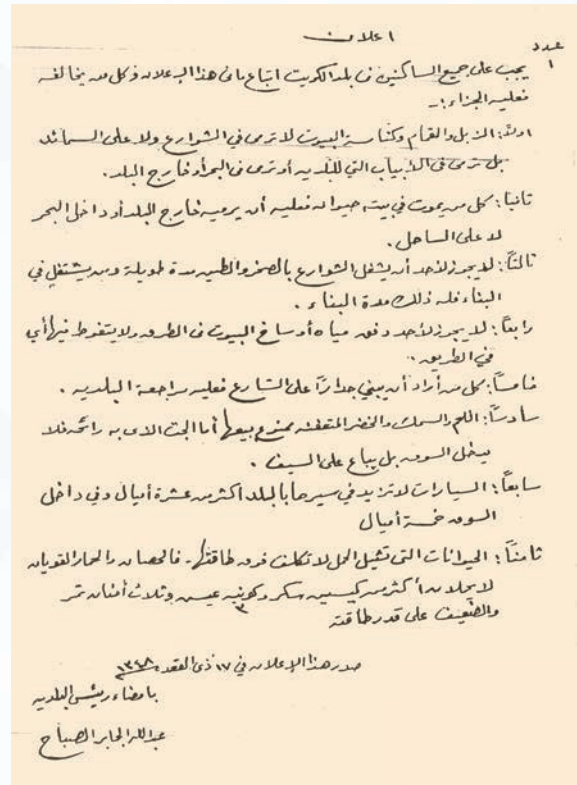 اعلان
عدد
١
يجب على جميع الساكنين في بلد الكويت اتباع ما في هذا الاعلان وكل من يخالفه
فعليه الجزاء :ـ
اولاً: الزبل والقمام وكناسة البيوت لا ترمى في الشوارع ولا على السمائد
بل ترمى في الأبياب التي للبلديه أو ترمى في البحر أو خارج البلد.
ثانيا: كل من يموت في بيته حيوان فعليه أن يرميه خارج البلد أو داخل البحر
لا على الساحل.
ثالثاً: لا يجوز لأحد أن يشغل الشوارع بالصخر والطين مدة طويلة ومن يشتغل في
البناء فله ذلك مدة البناء.
رابعاً: لا يجوز لأحد دفق مياه أوساخ البيوت في الطرق ولا يتغوط فيها أي
في الطريق.
خامساً: كل من أراد أن يبني جداراً على الشارع فعليه مراجعة البلديه.
سادساً: اللحم والسمك والخضر المتعفنه ممنوع بيعها أما الجت الذى به رائحه فلا
يدخل السوق بل يباع على السيف.
سابعاً: السيارات لا تزيد في سيرها بالبلد اكثر من عشرة أميال وفي داخل
السوق خمسة أميال
ثامناً: الحيوانات التى تشيل الحمل لا تكلف فوق طاقتها. فالحصان والحمار القويان
لا يحملان أكثر من كيسين سكر وكونيه عيش و٣ ثلاث أمنان تمر
والضعيف على قدر طاقته
صدر هذا الإعلان في ١٧ ذى القعد ١٣٤٨
بامضاء رئيس البلديه
عبدالله الجابر الصباح